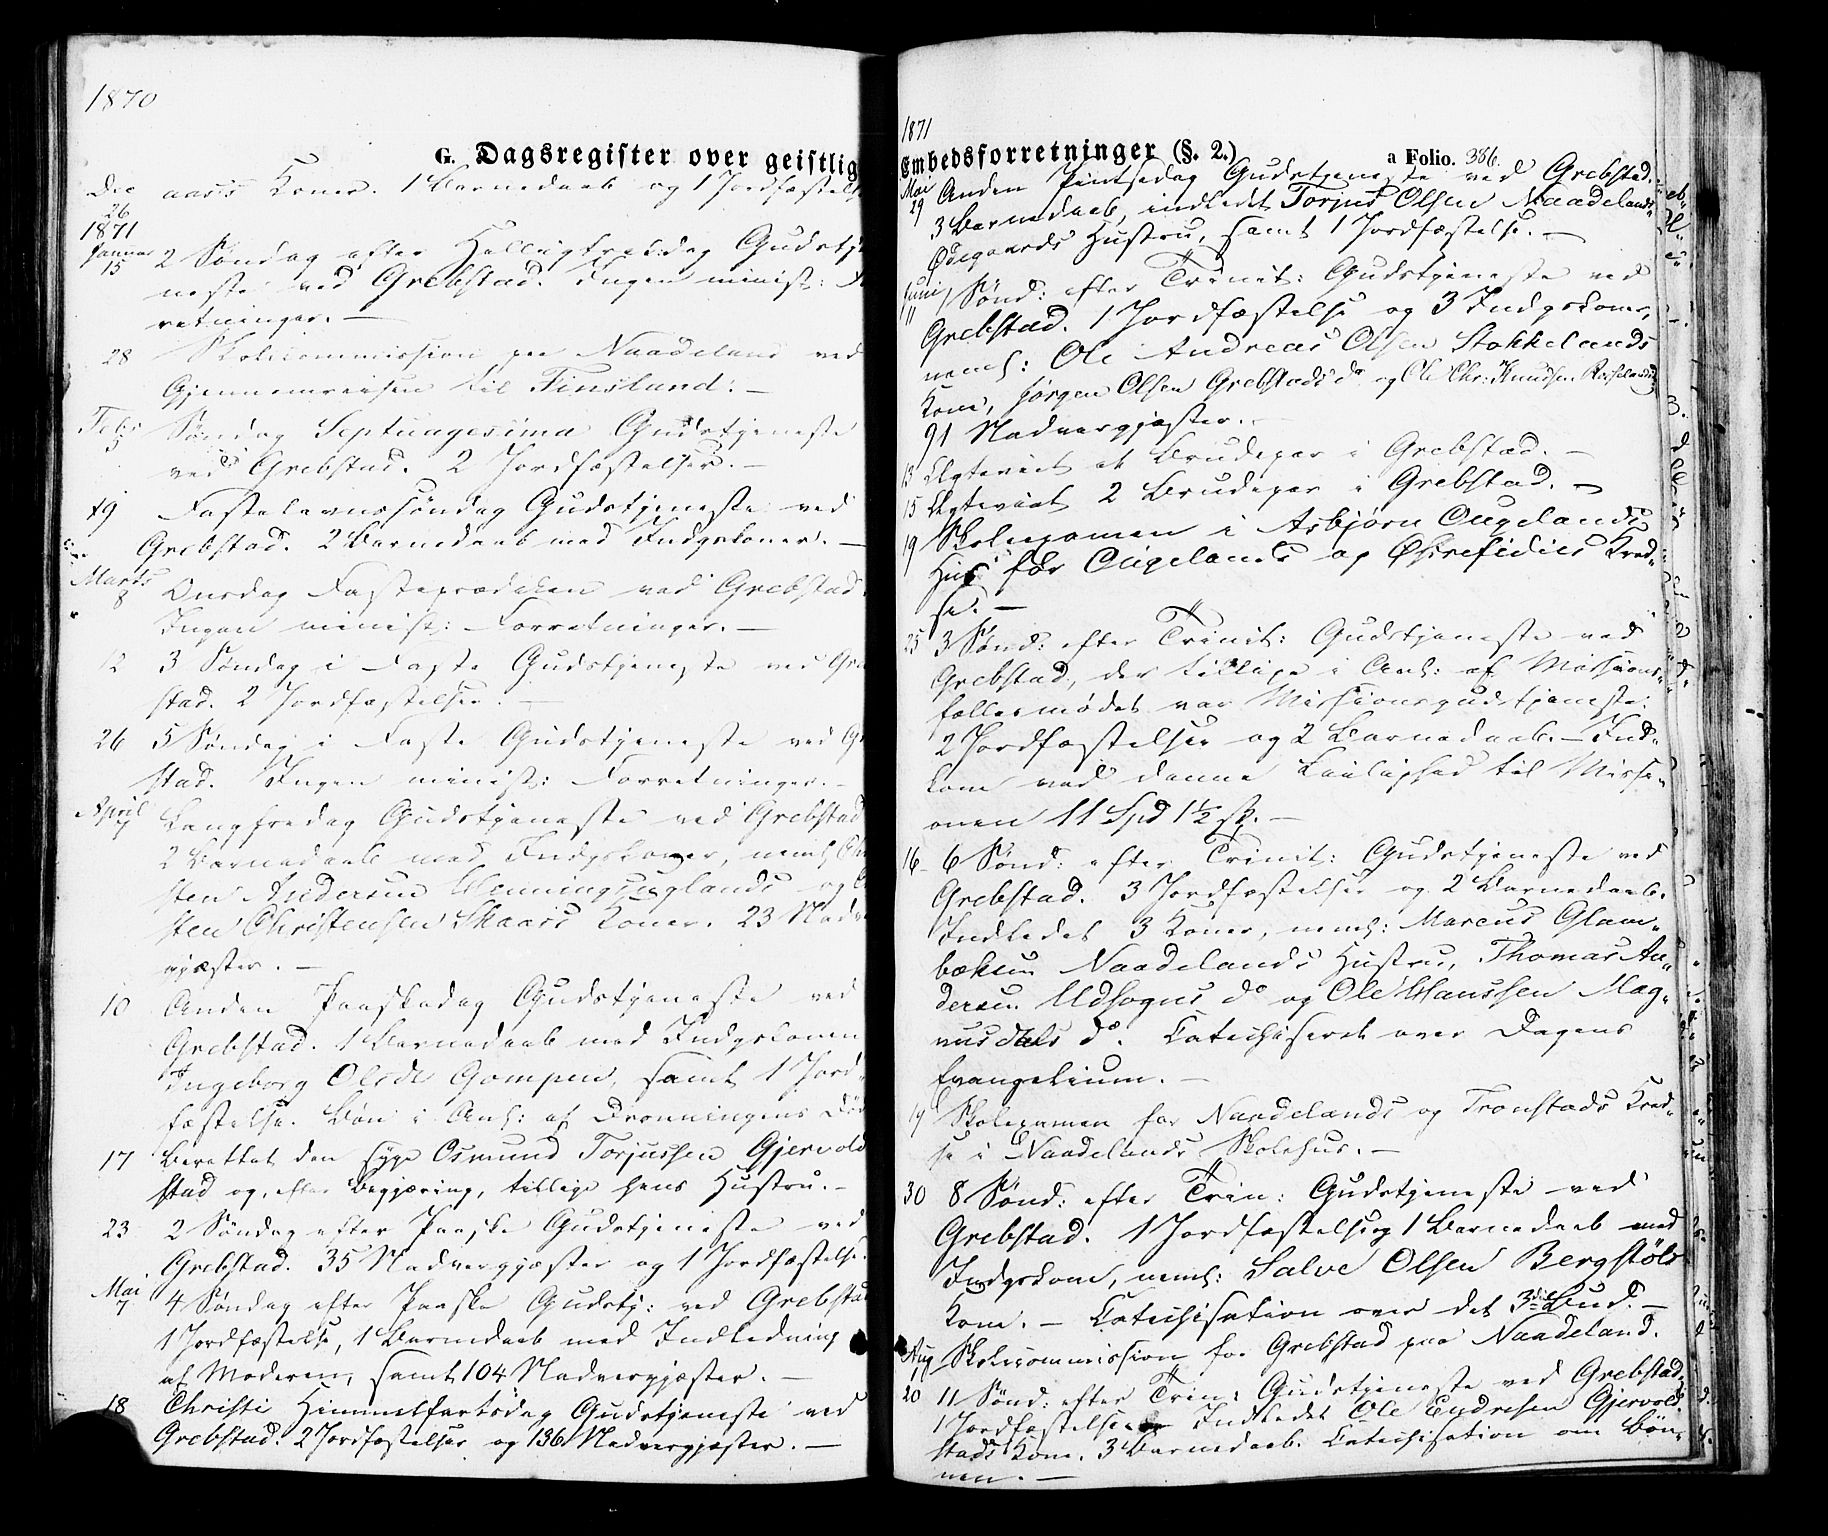 1870
G. Dagsregister over geistlig
Dec 26 aas's Koner. 1 Barnedaab og 1 Jordfæstelse
1871
Januar 15 2 Søndag efter Helligtrekdag Gudstj
neste ved Grebstad. Ingen minist: F
retninger. —
28 Skolecommission paa Naadeland ved
Gjennemreisen til Finsland. —
Febr 5 Søndag Septuagesima Gudstjeneste
ved Grebstad. 2 Jordfæstelser. —
19 Fastelavnssøndag Gudstjeneste ved
Grebstad. 2 Barnedaab med Indgskoner. —
Marts 8 Onsdag Fasteprædiken ved Grebstad.
Ingen minist: Forretninger. —
12 3 Søndag i Faste Gudstjeneste ved Gre
stad. 2 Jordfæstelser. —
26 5 Søndag i Faste Gudstjeneste ved Gr
stad. Ingen minist: Forretninger. —
April 7 Langfredag Gudstjeneste ved Grebstad
2 Barnedaab med Indgskoner, neml:
sten Andersen Henningsuglands og
sten Christensen Skaars Koner. 23 Nadv
gjæster. —
10 Anden Paaskedag Gudstjeneste ved
Grebstad. 1 Barnedaab med Indgskonen
Ingeborg Olsdr Gompen, samt 1 Jord-
fæstelse. Bøn i Anl: af Dronningens Død
17 Berettet den syge Osmund Torjussen Gjervold
stad og, efter Begjæring, tillige hans Hustru. —
23 2 Søndag efter Paaske Gudstjeneste ved
Grebstad. 35 Nadvergjæster og 1 Jordfæstelse.
Mai 7 4 Søndag efter Paaske Gudstj: ved Grebstad
1 Jordfæstelse, 1 Barnedaab med Indledning
af Moderen, samt 104 Nadvergjæster. —
18 Christi Himmelfartsdag Gudstjeneste ved
Grebstad. 2 Jordfæstelser og 136 Nadvergjæster. —
1871
Embedsforretninger (§. 2.) a Folio. 386.
Mai 29 Anden Pintsedag Gudstjeneste ved Grebstad.
3 Barnedaab, indledet Torjus Olsen Naadelands
Ødegaards Hustru, samt 1 Jordfæstelse. —
Juni 11 1 Sønd: efter Trinit: Gudstjeneste ved
Grebstad. 1 Jordfæstelse og 3 Indgskoner,
neml: Ole Andreas Olsen Stokkelands
Kone, Jørgen Olsen Grebstads do og Ole Chr: Knudsen
91 Nadvergjæster. —
13 Egteviet et Brudepar i Grebstad. —
15 Egteviet 2 Brudepar i Grebstad. —
19 Skoleexamen i Asbjørn Ougelands
Hus for Ougelands og Østrefidies Kred-
se. —
25 3 Sønd: efter Trinit: Gudstjeneste ved
Grebstad, der tillige i Anl: af Missions-
fællesmødet var Missionsgudstjeneste.
2 Jordfæstelser og 2 Barnedaab. — Ind-
kom ved denne Leilighed til Missi-
onen 11 Spd 1½ sk. —
16 6 Sønd: efter Trinit: Gudstjeneste ved
Grebstad. 3 Jordfæstelser og 2 Barnedaab.
Indledet 3 Koner, neml: Marcus Glam-
bæksen Naadelands Hustru, Thomas An-
dersen Udsogns do og Ole Hanssen Mag-
nusdals do. Catechiseret over Dagens
Evangelium. —
19 Skoleexamen for Naadelands og Tronstads Kred-
se i Naadelands Skolehus. —
30 8 Sønd: efter Trin: Gudstjeneste ved
Grebstad. 1 Jordfæstelse og 1 Barnedaab med
Indgskone, neml: Salve Olsen Bergstøls
Kone. — Catechisation over det 3die Bud. —
Aug Skolecommission for Grebstad paa Naadeland.
20 11 Sønd: efter Trin: Gudstjeneste ved Grebstad.
1 Jordfæstelse. Indledet Ole Endresen Gjervold-
stads Kone. 3 Barnedaab. Catechisation om Bøn-
nen. —